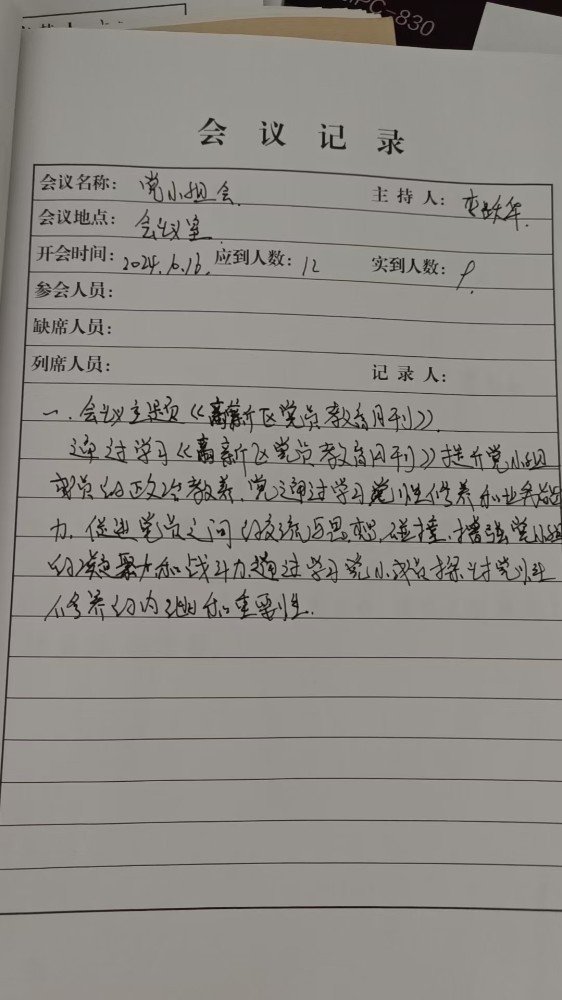 PC-830
会议记录
会议名称：党小组会 主持人：
会议地点：会议室
开会时间：2024.6.16. 应到人数：12 实到人数：9
参会人员：
缺席人员：
列席人员： 记录人：
一.会议主题《高新区党员教育月刊》.
通过学习《高新区党员教育月刊》提升党小组
成员的政治教养.党 通过学习党性修养和业务能
力.促进党员之间的交流与思想碰撞.增强党小组
的凝聚力和战斗力.通过学习党小成员探讨党性
修养的内涵和重要性.